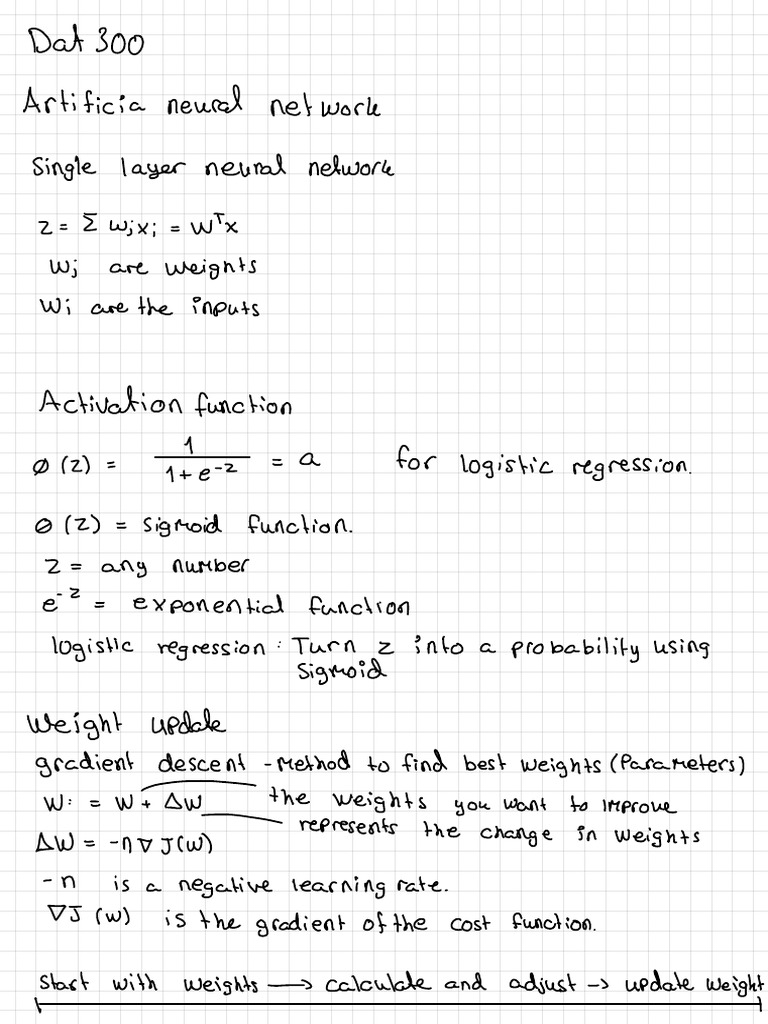 Dat 300
Artificia neural network
Single layer neural network
z = Σ wjxi = wᵀx
Wj are weights
Wi are the inputs
Activation function
ø (z) = 1 / (1 + e^-z) = a for logistic regression.
ø (z) = sigmoid function.
z = any number
e^-z = exponential function
logistic regression : Turn z into a probability using
sigmoid
Weight update
gradient descent - method to find best weights (parameters)
W: = W + ΔW the weights you want to improve
represents the change in weights
ΔW = -η∇J(W)
-η is a negative learning rate.
∇J (W) is the gradient of the cost function.
Start with weights → calculate and adjust → update weight